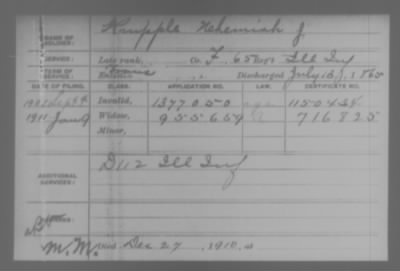 Knupple Nehemiah J.
NAME OF SOLDIER:
SERVICE: Late rank, Co. F, 65 Regt Ill Inf
TERM OF SERVICE: Enlisted Discharged July 13, 1865
DATE OF FILING. CLASS. APPLICATION NO. LAW. CERTIFICATE NO.
1902 Sept 9 Invalid, 1377050 1150434
1911 Jan 9 Widow, 955659 716825
Minor,
ADDITIONAL SERVICES: D 112 Ill Inf
Died Dec 27, 1910,